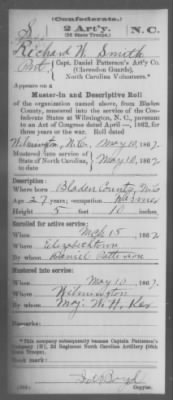 (Confederate.)
S 2 Art'y. N. C.
(36 State Troops.)
Richard W. Smith
Pvt., Capt. Daniel Patterson's Art'y Co.
(Clarendon Guards),
North Carolina Volunteers.*
Appears on a
Muster-In and Descriptive Roll
of the organization named above, from Bladen
County, mustered into the service of the Confederate
States at Wilmington, N. C., pursuant
to an Act of Congress dated April —, 1862, for
three years or the war. Roll dated
Wilmington, N.C., May 10, 1862.
Mustered into service of
State of North Carolina, to date May 10, 1862
Description:
Where born Bladen County, N.C.
Age 27 years; occupation Farmer
Height 5 feet 10 inches.
Enrolled for active service:
When Mch 15, 1862
Where Elizabethtown
By whom Daniel Patterson
Mustered into service:
When May 10, 1862
Where Wilmington
By whom Maj. W. H.
Remarks:
*This company subsequently became Captain Patterson's
Company (H), 2d Regiment North Carolina Artillery (36th
State Troops).
Boyd
Copyist.